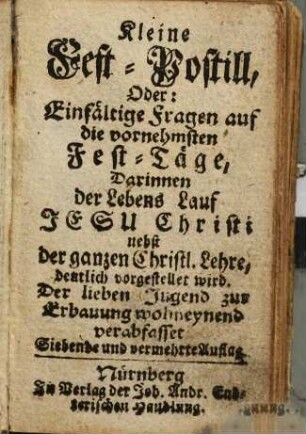 Kleine
Fest-Postill,
Oder:
Einfältige Fragen auf
die vornehmsten
Fest-Täge,
Darinnen
der Lebens Lauf
JESU Christi
nebst
der ganzen Christl. Lehre,
deutlich vorgestellet wird.
Der lieben Jugend zur
Erbauung wolmeynend
verabfasset
Siebende und vermehrte Auflag
Nürnberg
In Verlag der Joh. Andr. End-
terischen Handlung.